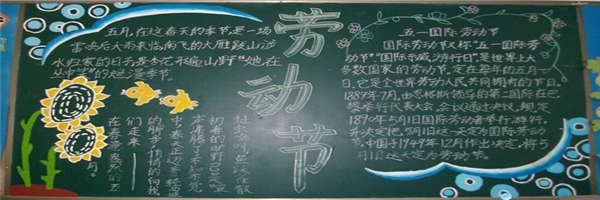 五月，在这春天的季节是一场
雷鸣后大雨来临，南飞的大雁跋山涉
水归家的日子是李花形遍山野"她在
丛中笑"的烂漫季节。
们走来——
的脚步悄悄的向我
在春意盎然的五
月。
劳动节
五一国际劳动节
国际劳动节又称"五一国际劳
动节"、"国际示威游行日"，是世界上大
多数国家的劳动节。定在每年的五月一
日。它是全世界劳动人民共同拥有的节日。
1889年7月，由恩格斯领导的第二国际在巴
黎举行代表大会，会议通过决议，规定
1890年5月1日国际劳动者举行，游行，
并决定把5月1日这一天定为国际劳动
节。中国于1949年12月作出决定，将
5月1日这天定为劳动节。